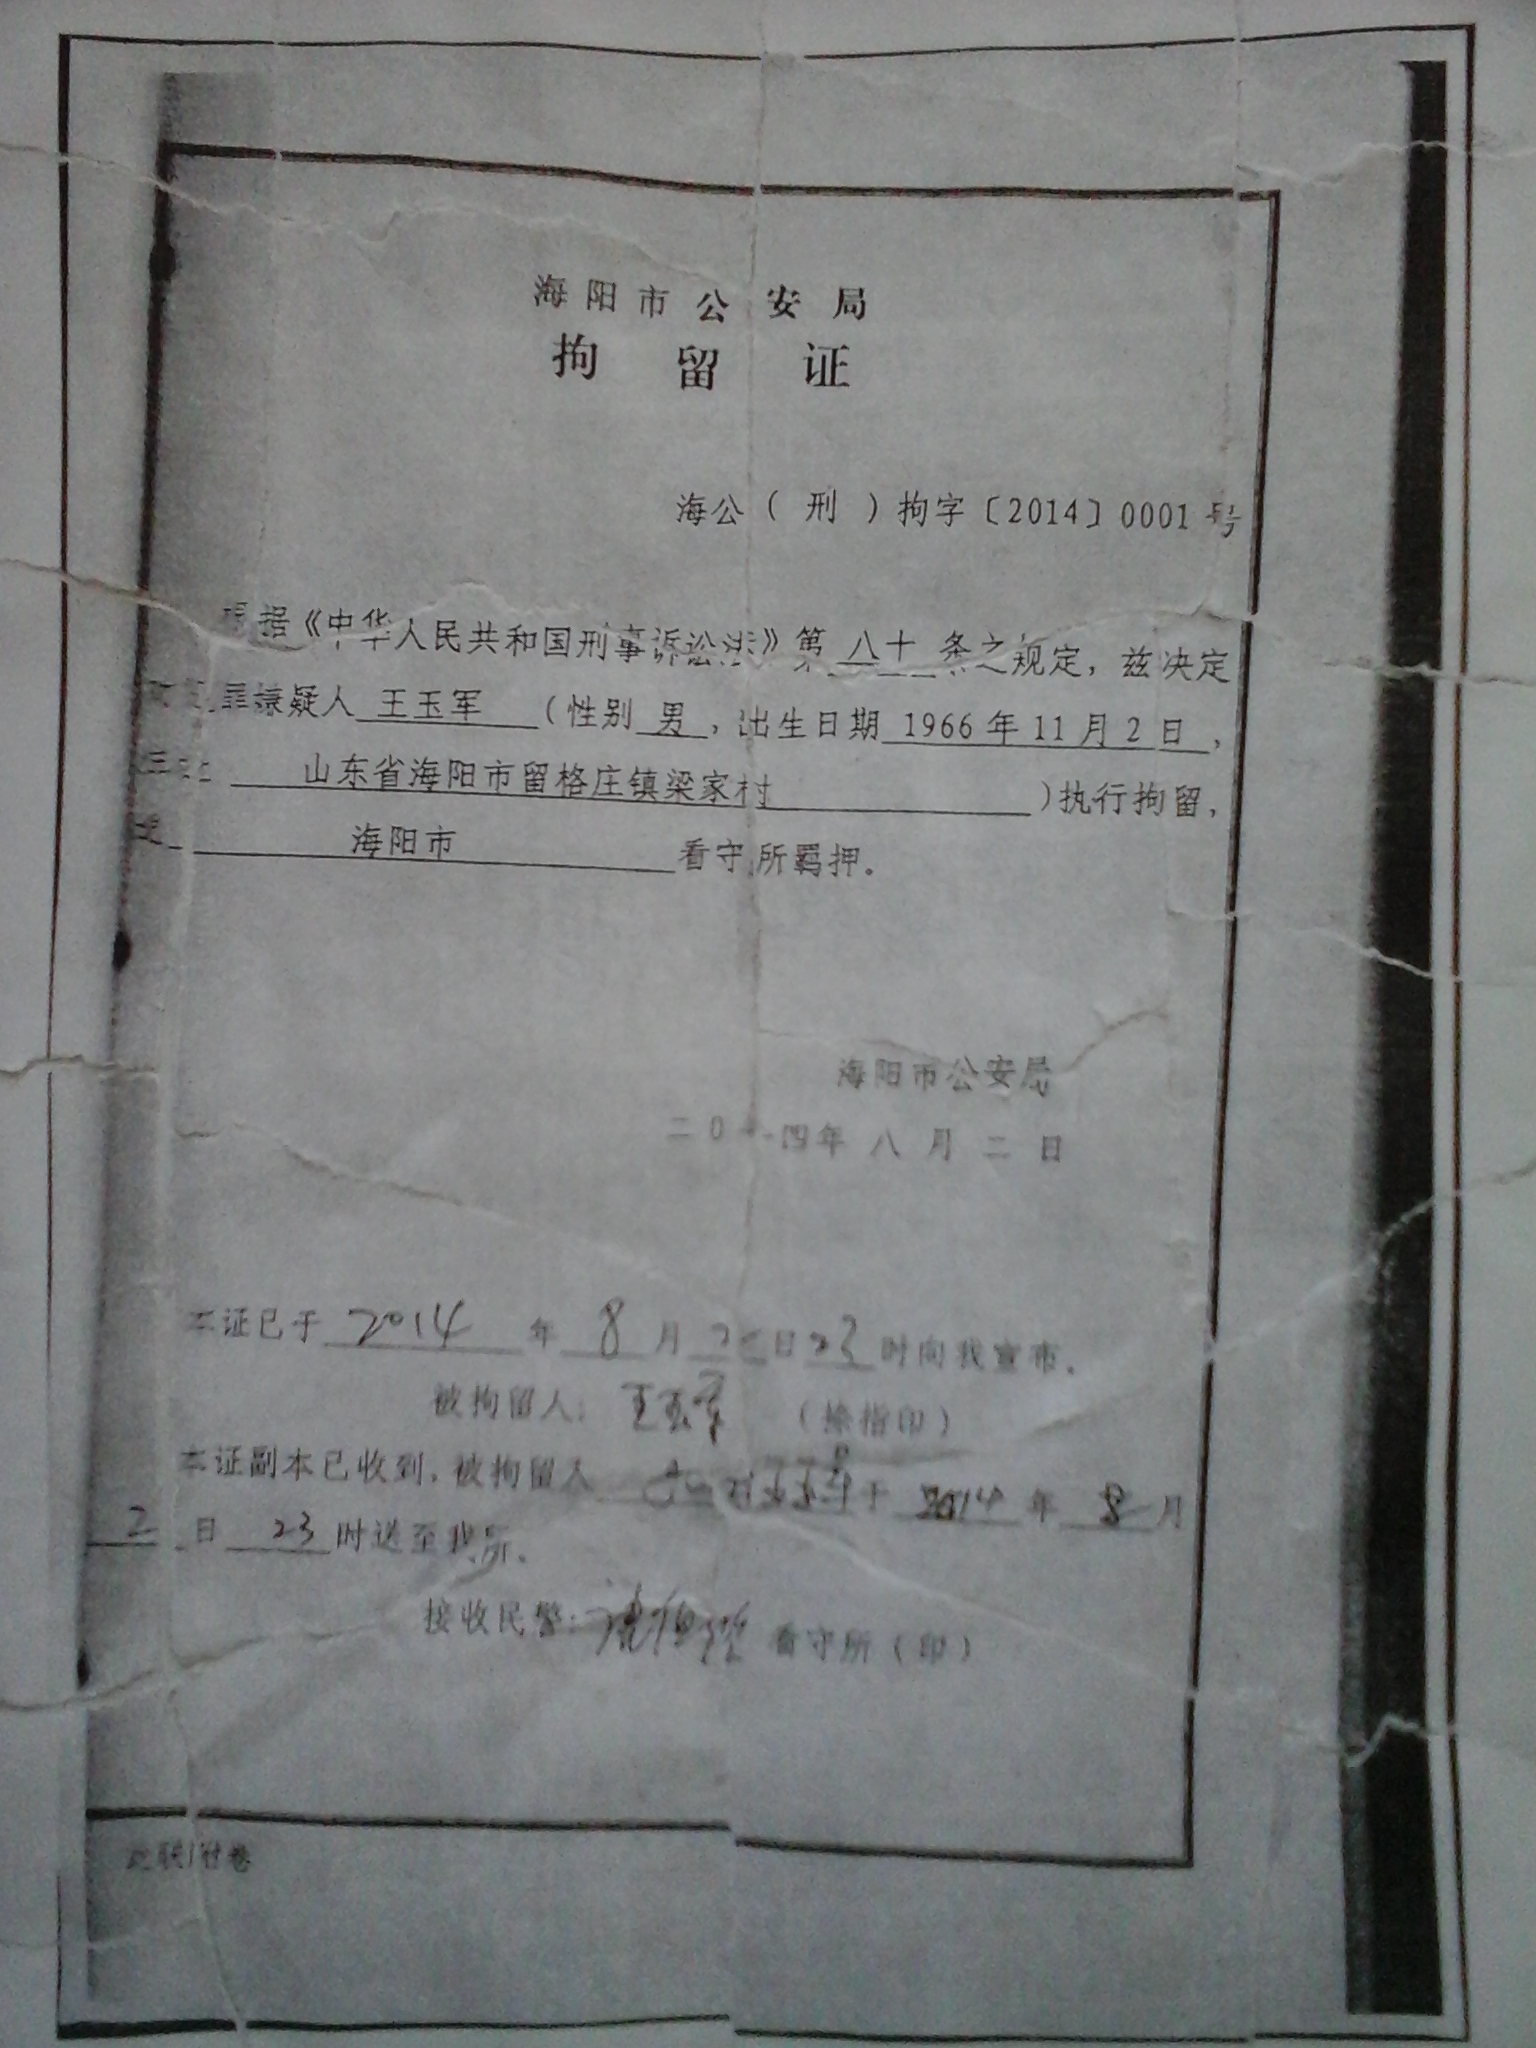 海阳市公安局
拘留证
海公（刑）拘字〔2014〕0001号
根据《中华人民共和国刑事诉讼法》第八十条之规定，兹决定
罪嫌疑人王玉军（性别男，出生日期1966年11月2日，
山东省海阳市留格庄镇梁家村）执行拘留，
海阳市看守所羁押。
海阳市公安局
二0一四年八月二日
本证已于2014年8月2日23时向我宣布。
被拘留人：王玉军（捺指印）
本证副本已收到，被拘留人 于2014年8月
2日23时送至我所。
接收民警： 看守所（印）
此联附卷